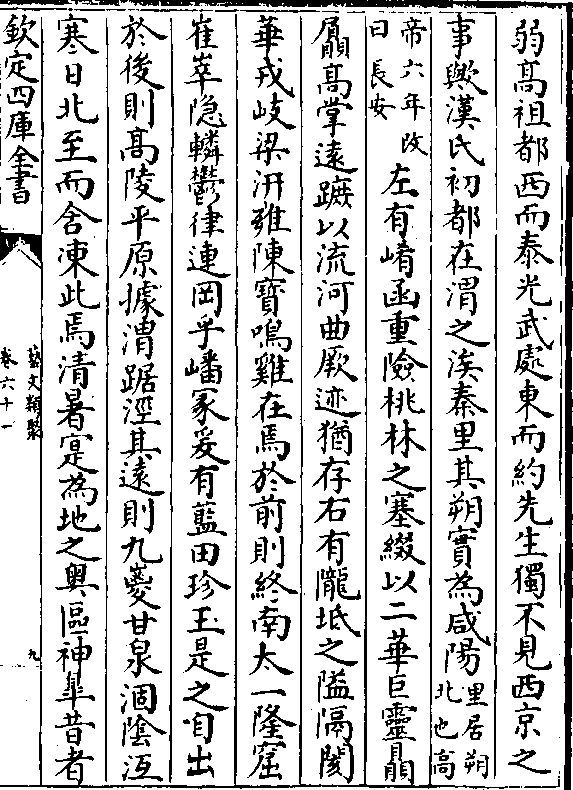 弱髙祖都西而泰光武處東而約先生獨不見西京之
事歟漢氏初都在渭之涘秦里其朔實為咸陽里居朔北也高
帝六年改曰長安左有崤函重險桃林之塞綴以二華巨靈贔
屭髙掌遠蹠以流河曲厥迹猶存右有隴坻之隘隔閡
華戎岐梁汧雍陳寶鳴雞在焉於前則終南太一隆窟
崔崒隐轔鬱律連岡乎嶓冢爰有藍田珍玉是之自出
於後則髙陵平原據渭踞涇其遠則九嵏甘泉涸陰冱
寒日北至而含凍此焉清暑寔為地之奥區神臯昔者
欽定四庫全書
藝文類聚
卷六十一
九